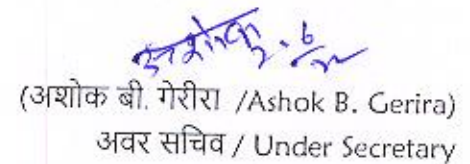 अशोक
(अशोक बी. गेरीरा /Ashok B. Gerira)
अवर सचिव / Under Secretary